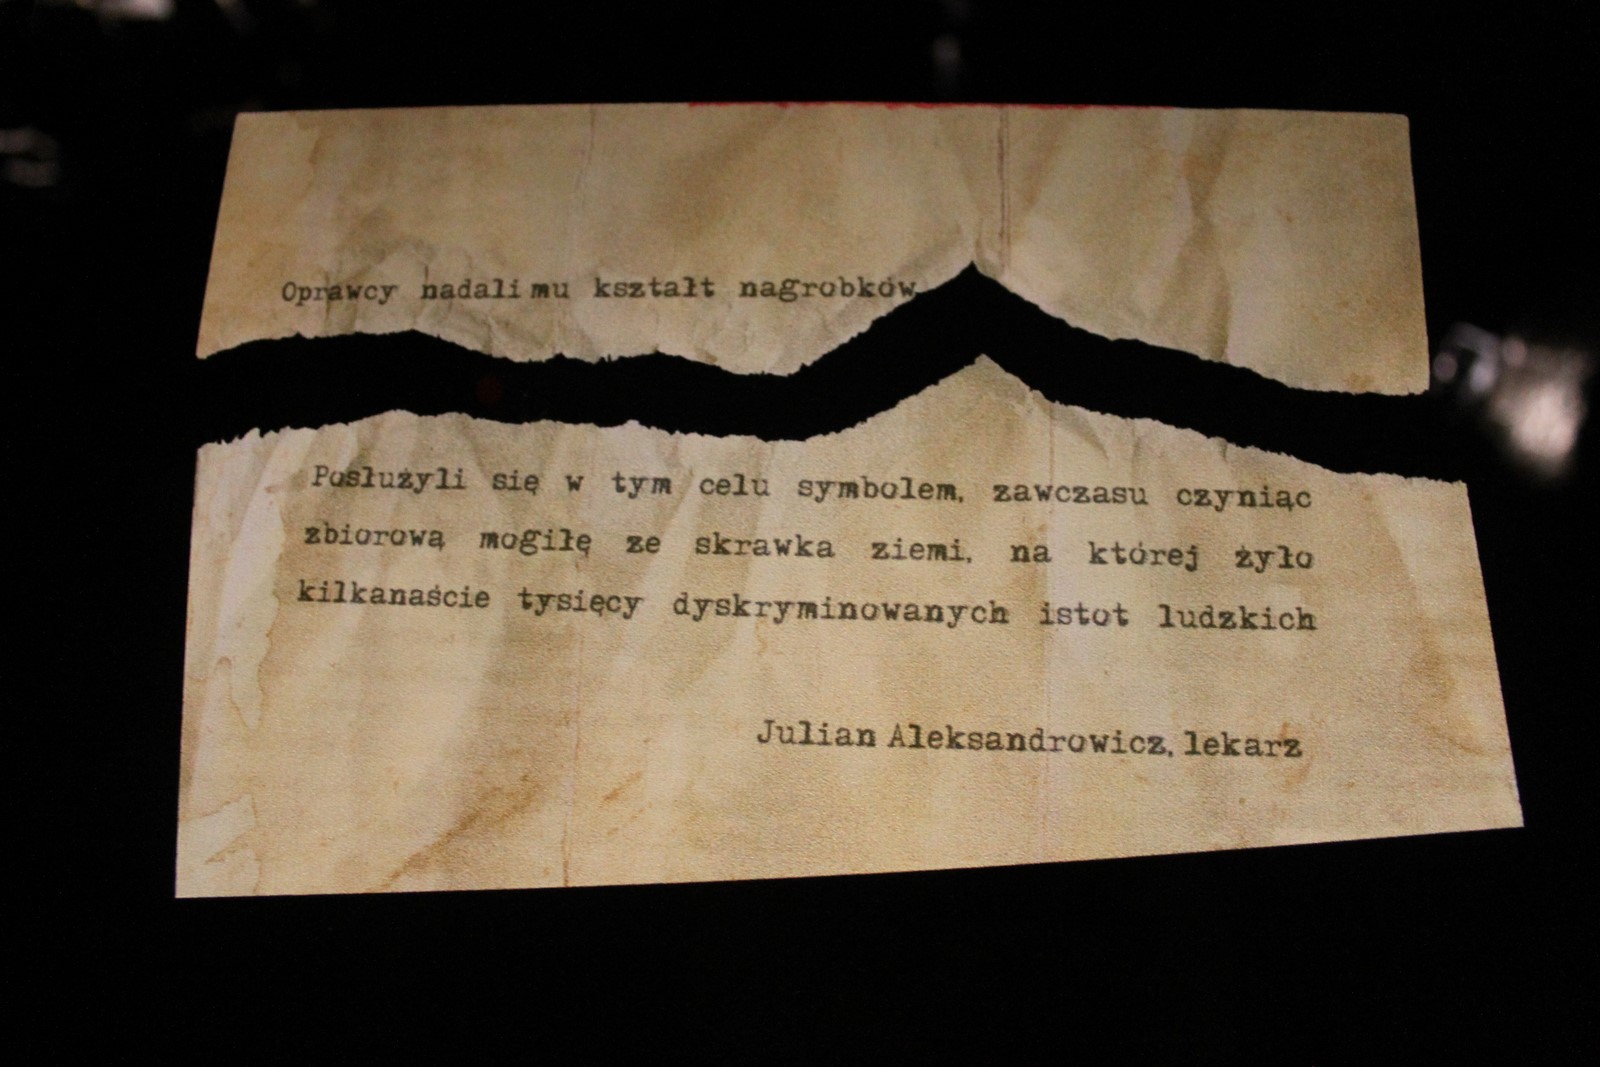 Oprawcy nadali mu kształt nagrobków
Posłużyli się w tym celu symbolem, zawczasu czyniąc
zbiorową mogiłę ze skrawka ziemi, na której żyło
kilkanaście tysięcy dyskryminowanych istot ludzkich
Julian Aleksandrowicz, lekarz